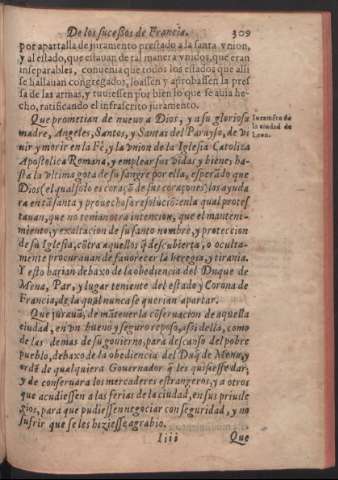 De los suceſſos de Francia. 309
por apartalla de juramento preſtado a la ſanta vnion,
y al eſtado, que eſtauan de tal manera vnidos, que eran
inſeparables, conuenia que todos los eſtados que aſsi
ſe hallauan congregados, loaſſen y aprobaſſen la preſ
ſa de las armas, y tuuieſſen por bien lo que ſe auia he-
cho, ratificando el infraſcrito juramento.
Que prometian de nueuo a Dios, y a ſu glorioſa
madre, Angeles, Santos, y Santas del Parayſo, de vi
uir y morir en la Fè, y la vnion de la Igleſia Catolica
Apoſtolica Romana, y emplear ſus vidas y bienes, haſ-
ta la vltima gota de ſu ſangre por ella, eſperãdo que
Dios (el qual ſolo es coraçõ de ſus coraçones) los ayuda
ra en tã ſanta y prouechoſa reſoluciõ: en la qual proteſ
tauan, que no tenian otra intencion, que el manteni-
miento, y exaltacion de ſu santo nombre, y proteccion
de ſu Igleſia, cõtra aquellos q̃ deſcubierta, o oculta-
mente procurauan de fauorecer la heregia, y tirania.
Y eſto harian debaxo de la obediencia del Duque de
Mena, Par, y lugarteniente del eſtado y Corona de
Francia, de la qual nunca ſe querian apartar.
Que jurauã, de mãtener la cõſeruacion de aquella
ciudad, en vn bueno y ſeguro repoſo, aſsi della, como
de las demas de ſu gouierno, para deſcanſo del pobre
pueblo, debaxo de la obediencia del Duq̃ de Mena, y
ordẽ de qualquiera Gouernador q̃ les quiſieſſe dar;
y de conſeruar a los mercaderes eſtrangeros, y a otros
que acudieſſen a las ferias de la ciudad, en ſus priuile
gios, para que pudieſſen negociar con ſeguridad, y no
ſufrir que ſe les hizieſſe agrabio.
Iiii Que
Iuramẽto de
la ciudad de
Leon.